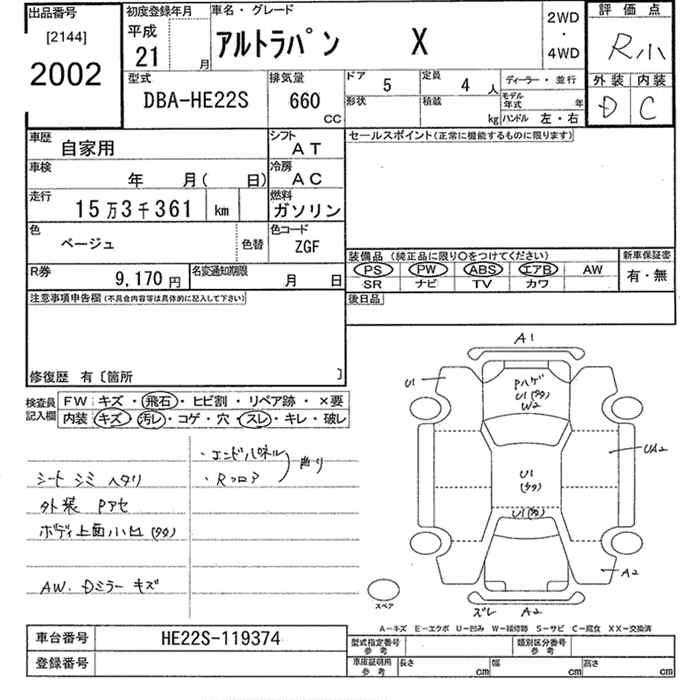 出品番号
[2144]
2002
初度登録年月
平成
21 月
車名・グレード
アルトラパン X
2WD
・
4WD
評価点
R小
外装 内装
D C
型式
DBA-HE22S
排気量
660
CC
ドア 5
定員 4 人
形状
積載 kg
ディーラー・並行
モデル年式 年
ハンドル 左・右
車歴
自家用
シフト
AT
車検
年 月( 日)
冷房
AC
走行
15万3千361 km
燃料
ガソリン
色
ベージュ
色替
色コード
ZGF
R券
9,170円
名変通知期限
月 日
セールスポイント(正常に機能するものに限ります)
装備品 (純正品に限り〇をつけてください)
新車保証書
PS PW ABS エアB AW
SR ナビ TV カワ
有・無
後日品
注意事項申告欄(不具合内容等は具体的に記入して下さい)
修復歴 有〔箇所 〕
検査員
記入欄
FW キズ・飛石・ヒビ割・リペア跡・×要
内装 キズ・汚レ・コゲ・穴・スレ・キレ・破レ
シート シミ ヘタリ
外装 Pアセ
ボディ上面小凹(多々)
AW. Dミラー キズ
・エンドパネル
・Rフロア
曲り
A1
U1
Pハゲ
U1(多々)
W2
U1
(多々)
U1(多々)
UA2
A2
ズレ A2
スペア
A-キズ E-エクボ U-凹み W-補修跡 S-サビ C-腐食 XX-交換済
車台番号
HE22S-119374
登録番号
型式指定番号
参考
類別区分番号
参考
車庫証明用
参考
長さ cm
幅 cm
高さ cm